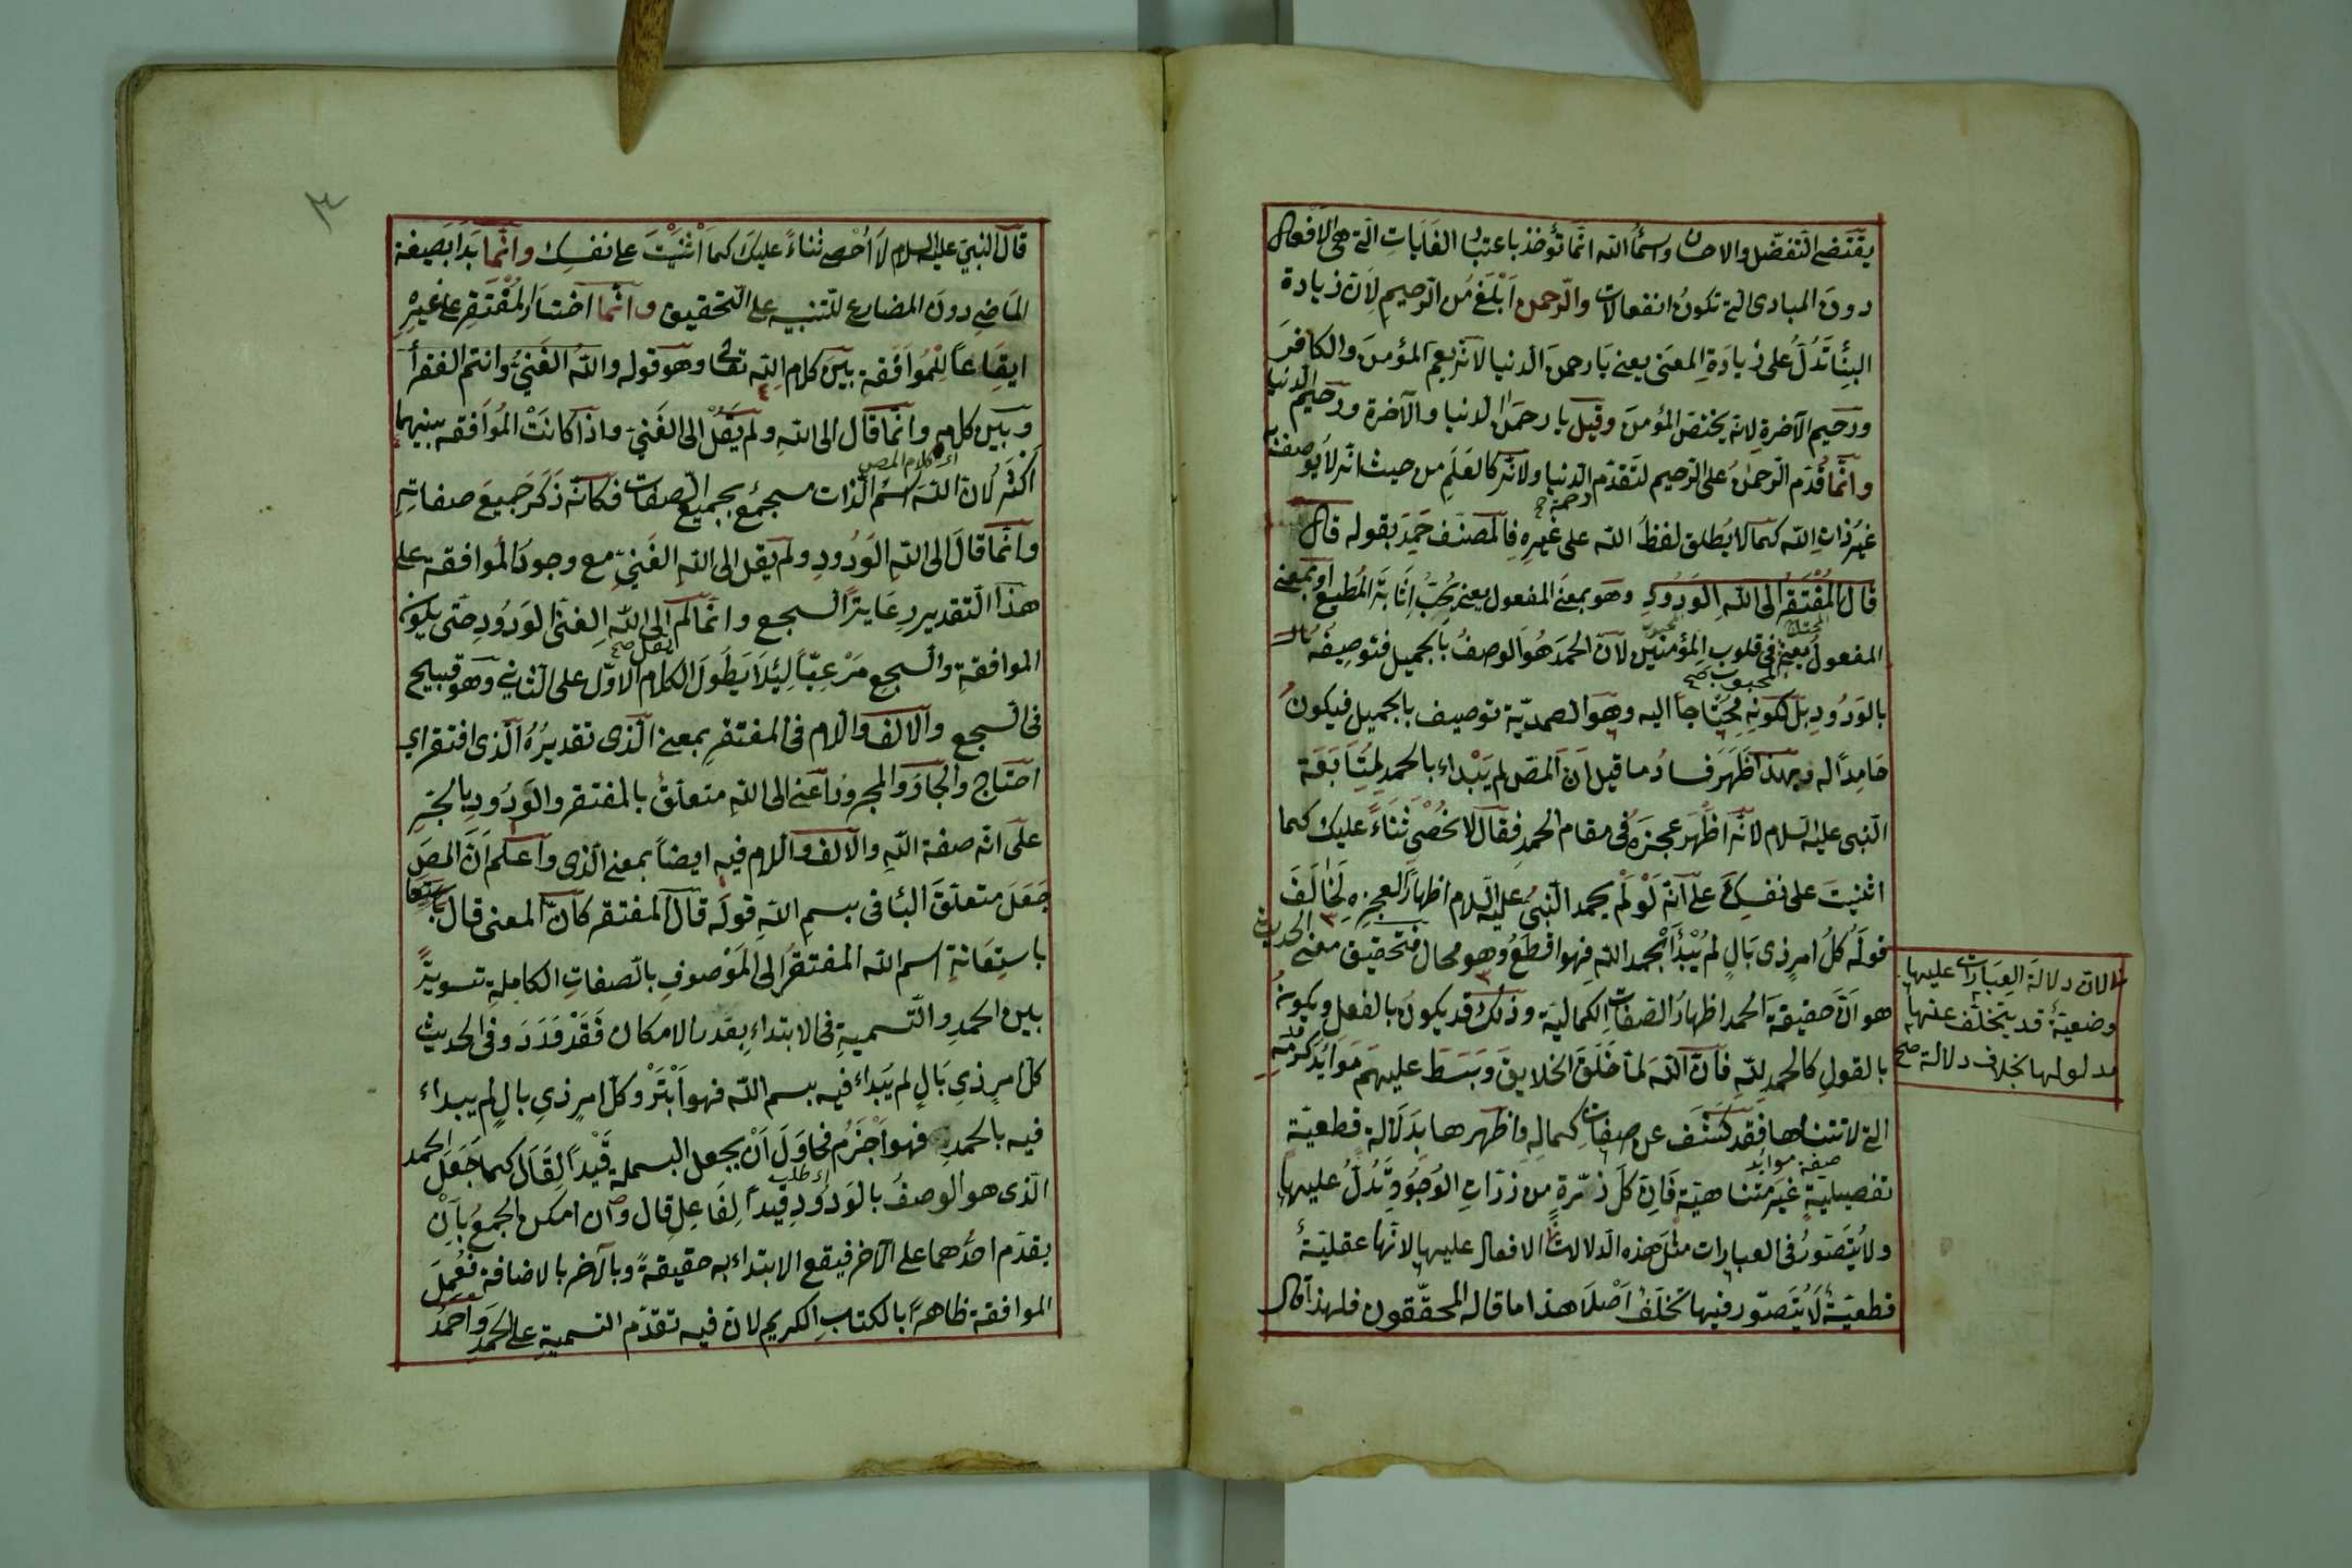 يقتضى التفضّل والاحسان واسماء الله انما تؤخذ باعتبار الغايات التى هى الافعال
دون المبادى التى تكون انفعالات والرحمن ابلغ من الرحيم لان زيادة
البناء تدل على زيادة المعنى يعنى يا رحمن الدنيا لانه يعم المؤمن والكافر
ورحيم الآخرة لانه يختص المؤمن وقيل يا رحمن الدنيا والآخرة ورحيم الدنيا
وانما قدم الرحمن على الرحيم لتقدم رحمة الدنيا ولانه كالعلم من حيث انه لا يوصف به
غير ذات الله كما لا يطلق لفظ الله على غيره فالمصنف حمد بقوله قال
قال المفتقر الى الله الودود وهو بمعنى المفعول يعنى يحب اثابة المطيع او بمعنى
المفعول يعنى المحبوب فى قلوب المؤمنين لان الحمد هو الوصف بالجميل فتوصيفه
بالودود بل لكونه محتاجا اليه وهو الصمدية توصيف بالجميل فيكون
حامدا له وبهذا ظهر فساد ما قيل ان المص لم يبداء بالحمد لمتابعة
النبى عليه السلام لانه اظهر عجزه فى مقام الحمد فقال لا نحصى ثناء عليك كما
اثنيت على نفسك على انه لو لم يحمد النبى عليه السلام اظهارا لعجزه لخالف
قوله كل امر ذى بال لم يبدأ بحمد الله فهو اقطع وهو محال فتحقيق معنى الحديث
هو ان حقيقة الحمد اظهار الصفات الكمالية وذلك قد يكون بالفعل ويكون
بالقول كالحمد لله فان الله لما خلق الخلايق وبسط عليهم موائد كرمه
التى لا تتناها فقد كشف عن صفات كماله واظهرها بدلالة قطعية
تفصيلية غير متناهية فان كل ذرة من ذرات الوجود تدل عليها
ولا يتصور فى العبارات مثل هذه الدلالات الافعال عليها لانها عقلية
قطعية لا يتصور فيها تخلف اصلا هذا ما قاله المحققون فلهذا قال
لان دلالة العبارات عليها
وضعية قد يتخلف عنها
مدلولها بخلاف دلالة صح
٣
قال النبى عليه السلام لا احصى ثناء عليك كما اثنيت على نفسك وانما بدا بصيغة
الماضى دون المضارع للتنبيه على التحقيق وانما اختار المفتقر على غيره
ايقاعا للموافقة بين كلام الله تعالى وهو قوله والله الغنى وانتم الفقراء
وبين كلامه وانما قال الى الله ولم يقل الى الغنى واذا كانت الموافقة بينهما
اى كلام المص
اكثر لان الله اسم الذات مسجمع بجميع الصفات فكانه ذكر جميع صفاته
وانما قال الى الله الودود ولم يقل الى الله الغنى مع وجود الموافقة على
هذا التقدير رعاية السجع وانما لم يقل صح الى الله الغنى الودود حتى يكون
الموافقة والسجع مرعيا لئلا يطول الكلام الاول على الثانى وهو قبيح
فى السجع والالف واللام فى المفتقر بمعنى الذى تقديره الذى افتقر اى
احتاج والجار والمجرور اعنى الى الله متعلق بالمفتقر والودود بالجر
على انه صفة الله والالف واللام فيه ايضا بمعنى الذى واعلم ان المص
جعل متعلق الباء فى بسم الله قوله قال المفتقر كان المعنى قال
باستعانة اسم الله المفتقر الى الموصوف بالصفات الكاملة تسوية
بين الحمد والتسمية فى الابتداء بقدر الامكان فقد ورد وفى الحديث
كل امر ذى بال لم يبداء فيه ببسم الله فهو ابتر وكل امر ذى بال لم يبداء
فيه بالحمد فهو اجزم فحاول ان يجعل البسملة قيدا لقال كما جعل الحمد
اى طلب
الذى هو الوصف بالودود قيدا لفاعل قال وان امكن الجمع بان
يقدم احدهما على الآخر فيقع الابتداء به حقيقة وبالآخر بالاضافة فعمل
الموافقة ظاهرا بالكتاب الكريم لان فيه تقدم التسمية على الحمد واحمد